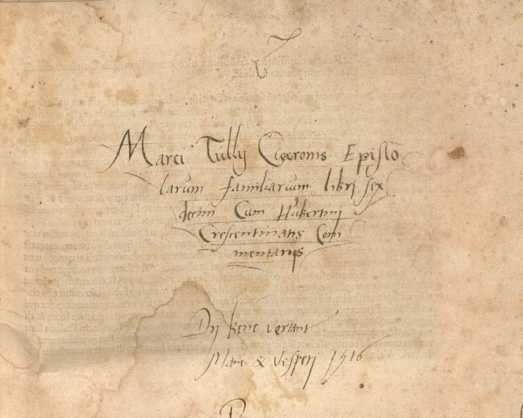 Marci Tullij Ciceronis Episto
larum familiarum libri sex
decim Cum Hubertini
Crescentinatis Com
mentarijs
Dij bene vertant
Mane & vesperj 1516